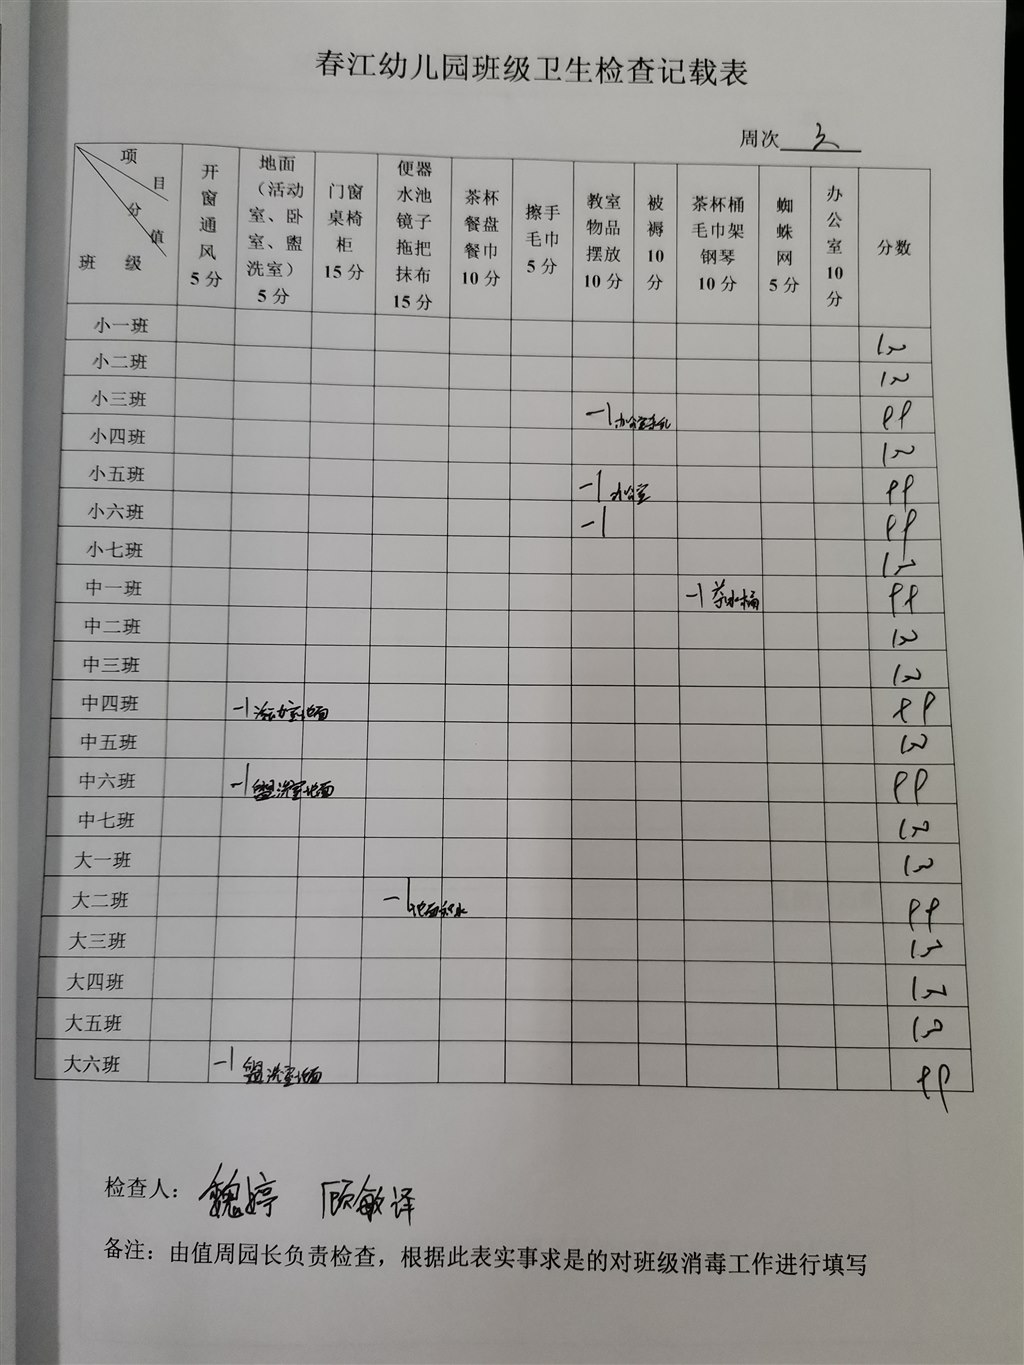 春江幼儿园班级卫生检查记载表
周次
项目 分值 班级 开窗通风5分 地面（活动室、卧室、盥洗室）5分 门窗桌椅柜15分 便器水池镜子拖把抹布15分 茶杯餐盘餐巾10分 擦手毛巾5分 教室物品摆放10分 被褥10分 茶杯桶毛巾架钢琴10分 蜘蛛网5分 办公室10分 分数
小一班 100
小二班 100
小三班 -1 99
小四班 100
小五班 -1 办公室 99
小六班 -1 99
小七班 100
中一班 -1 茶水桶 99
中二班 100
中三班 100
中四班 -1 活动室地面 99
中五班 100
中六班 -1 盥洗室地面 99
中七班 100
大一班 100
大二班 -1 地面积水 99
大三班 100
大四班 100
大五班 100
大六班 -1 盥洗室地面 99
检查人：魏婷 顾敏译
备注：由值周园长负责检查，根据此表实事求是的对班级消毒工作进行填写